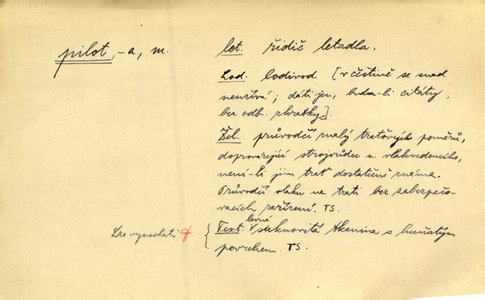 pilot, -a, m. let. řidič letadla.
Lod. lodivod [v češtině se snad
neužívá; dáti jen, budou-li citáty,
bez odb. zkratky].
Žel. průvodčí znalý traťových poměrů,
doprovázející strojvůdce n. vlakvedoucího,
není-li jim trať dostatečně známa.
Průvodčí vlaku na trati bez zabezpečo-
vacích zařízení. TS.
levná
Lze vynechati Text. suknovitá tkanina s huňatým
povrchem TS.